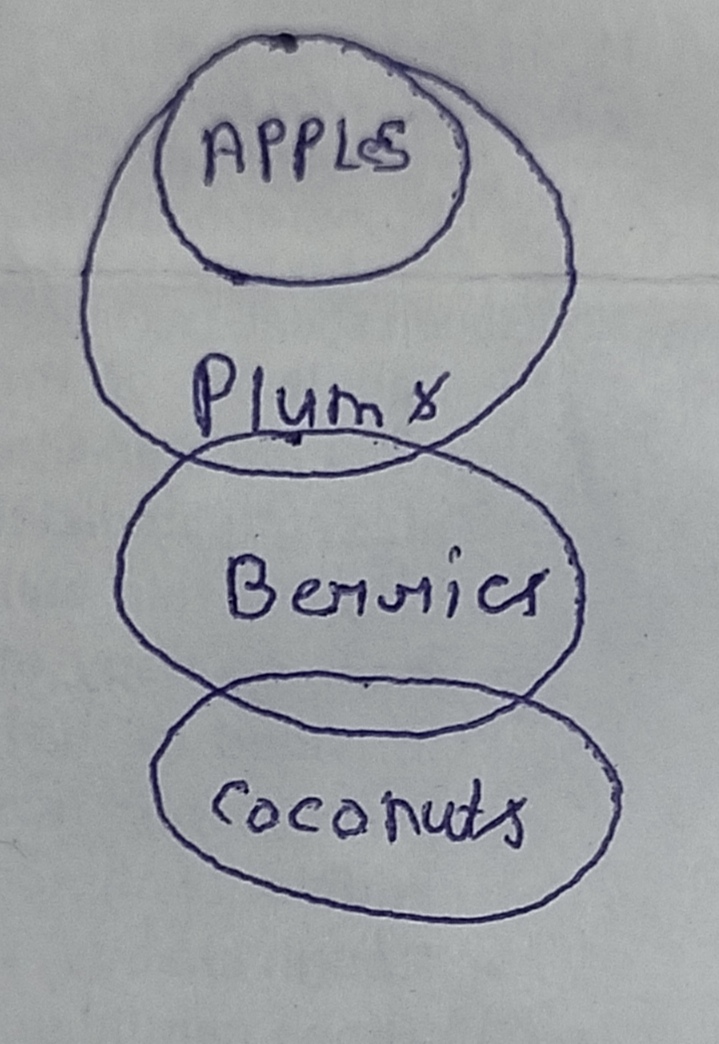 APPLES
Plums
Berries
Coconuts